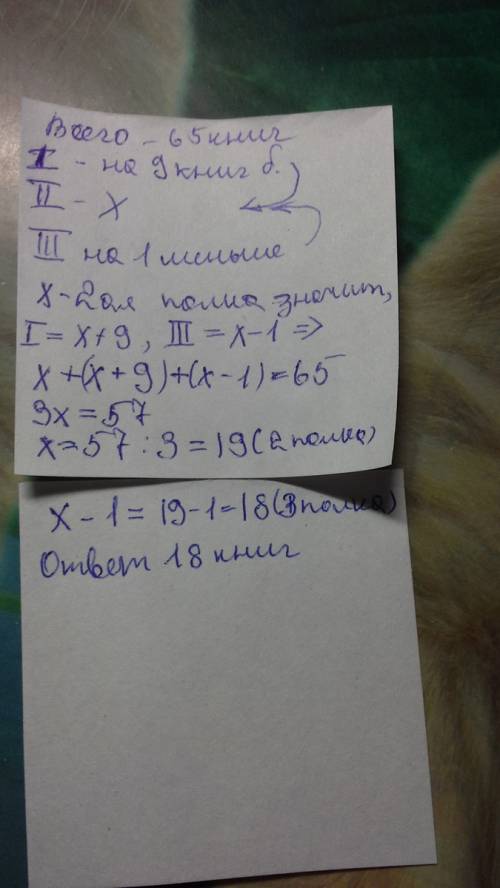 Всего - 65 книг
I - на 9 книг б.
II - х
III на 1 меньше
х - 2ая полка значит,
I = х + 9 , III = х - 1 =>
х + (х + 9) + (х - 1) = 65
3х = 57
х = 57 : 3 = 19 (2 полка)
х - 1 = 19 - 1 = 18 (3 полка)
Ответ 18 книг